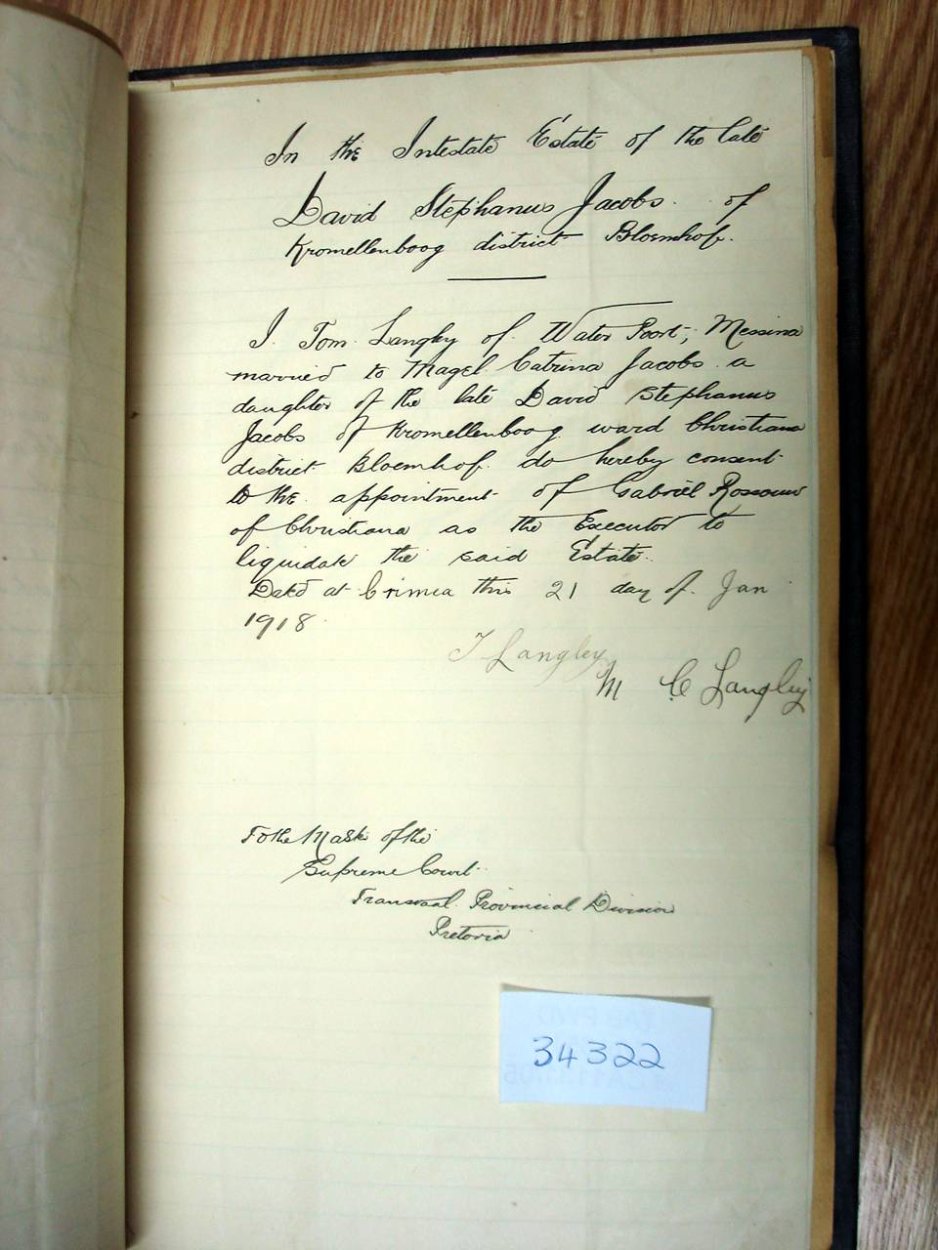 In the Intestate Estate of the late
David Stephanus Jacobs of
Kromellenboog district Bloemhof.
I Tom Langley of Water Poort, Messina
married to Magel Catrina Jacobs a
daughter of the late David Stephanus
Jacobs of Kromellenboog ward Christiana
district Bloemhof do hereby consent
to the appointment of Gabriel Rossouw
of Christiana as the Executor to
liquidate the said Estate.
Dated at Crimea this 21 day of Jan
1918.
T Langley
M C Langley
To the Master of the
Supreme Court
Transvaal Provincial Division
Pretoria
34322